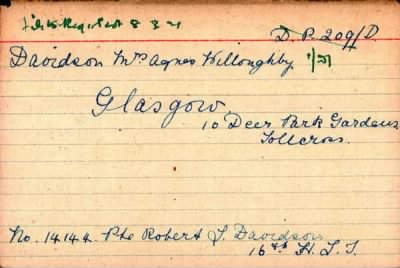 8 3 21
D. P. 209/D
Davidson Mrs Agnes Willoughby 1/21
Glasgow
10 Deer Park Gardens
Tollcross.
No. 14144. Pte Robert J. Davidson
16th H. L. I.